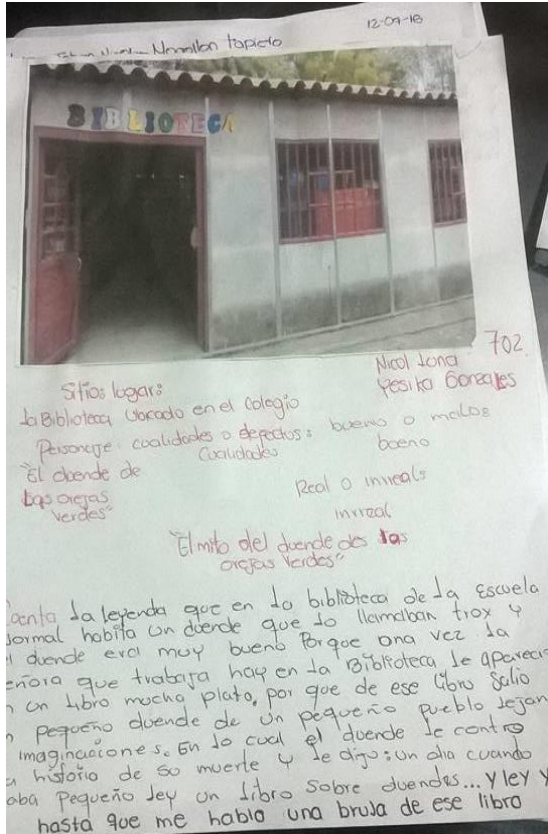 12-09-18
tapiero
BIBLIOTECA
702
Nicol Lona
Yesika Gonzales
Sitio: lugar:
la Biblioteca Ubicado en el Colegio
Personaje: cualidades o defectos: bueno o malos
Cualidades bueno
"El duende de
Las orejas
verdes"
Real o inreal:
inrreal
"El mito del duende des las
orejas verdes"
la leyenda que en la biblioteca de la Escuela
habita un duende que lo llamaban trox y
duende era muy bueno Porque una vez la
que trabaja hay en la Biblioteca le
un libro mucha plato, por que de ese libro salio
pequeño duende de un pequeño pueblo
imaginaciones. En lo cual el duende le contro
historia de so muerte y le digo: un dia cuando
Pequeño ley un libro Sobre duendes... y ley y
hasta que me hablo una bruja de ese libro